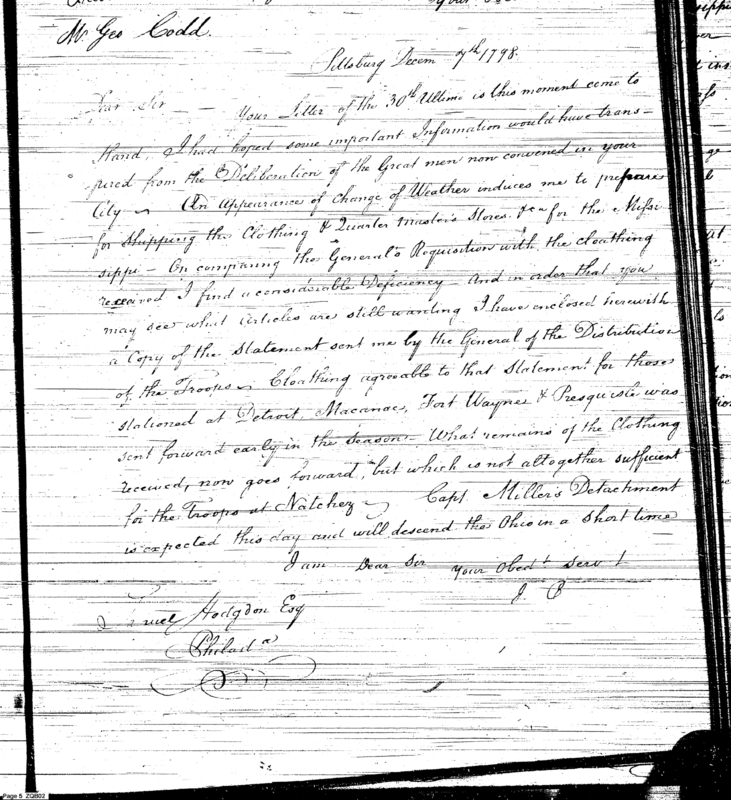 Mr. Geo Codd.
Pittsburg Decem 7th 1798.
Dear Sir — Your Letter of the 30th Ultimo is this moment come to
Hand. I had hoped some important Information would have trans-
pired from the Deliberation of the Great men now convened in your
City — An appearance of Change of Weather induces me to prepare
for Shipping the Clothing & Quarter Master's Stores &ca for the Missi
sippi — On comparing the General's Requisition with the cloathing
received I find a considerable Deficiency — And in order that you
may see what articles are still wanting I have enclosed herewith
a Copy of the Statement sent me by the General of the Distribution
of the Troops — Cloathing agreeable to that Statement for those
stationed at Detroit, Macanac, Fort Wayne & Presquisle was
sent forward early in the Season — What remains of the Clothing
received, now goes forward, but which is not altogether sufficient
for the Troops at Natchez — Capt Miller's Detachment
is expected this day and will descend the Ohio in a short time
I am Dear Sir your Obedt Servt
J B
Hodgdon Esq
Philada
Page 5 ZQB02